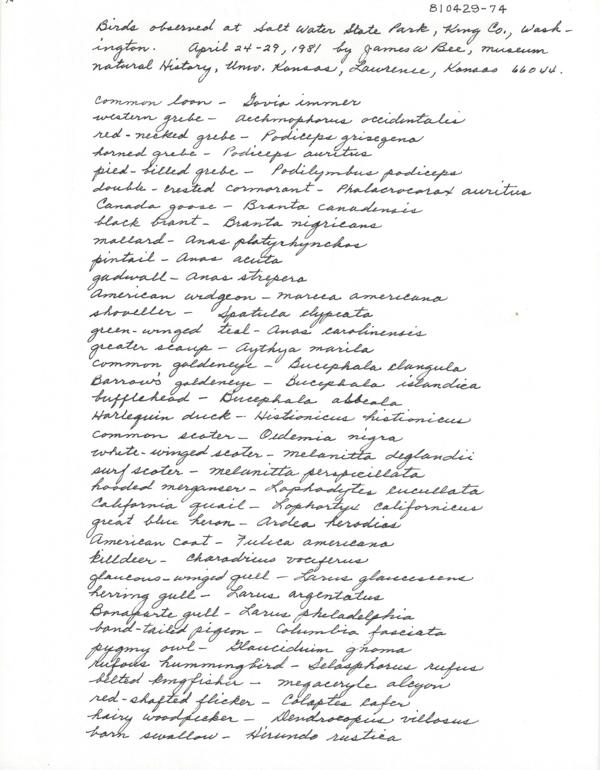 810429-74
Birds observed at Salt Water State Park, King Co., Wash-
ington. April 24-29, 1981 by James W Bee, museum
natural History, Univ. Kansas, Lawrence, Kansas 66044.
Common loon - Gavia immer
western grebe - Aechmophorus occidentalis
red-necked grebe - Podiceps grisegena
horned grebe - Podiceps auritus
pied-billed grebe - Podilymbus podiceps
double-crested cormorant - Phalacrocorax auritus
Canada goose - Branta canadensis
black brant - Branta nigricans
mallard - Anas platyrhynchos
pintail - Anas acuta
gadwall - Anas strepera
American widgeon - mareca americana
shoveller - Spatula clypeata
green-winged teal - Anas carolinensis
greater scaup - Aythya marila
Common goldeneye - Bucephala clangula
Barrow's goldeneye - Bucephala islandica
bufflehead - Bucephala albeola
Harlequin duck - Histionicus histionicus
Common scoter - Oidemia nigra
white-winged scoter - melanitta deglandii
surf scoter - melanitta perspicillata
hooded merganser - Lophodytes cucullata
California quail - Lophortyx californicus
great blue heron - Ardea herodias
American coot - Fulica americana
killdeer - Charadrius vociferus
glaucous-winged gull - Larus glaucescens
herring gull - Larus argentatus
Bonaparte gull - Larus pheladelphia
band-tailed pigeon - Columbia fasciata
pygmy owl - Glaucidium gnoma
rufous hummingbird - Selasphorus rufus
belted kingfisher - megaceryle alcyon
red-shafted flicker - Colaptes cafer
hairy woodpecker - Dendrocopius villosus
barn swallow - Hirundo rustica